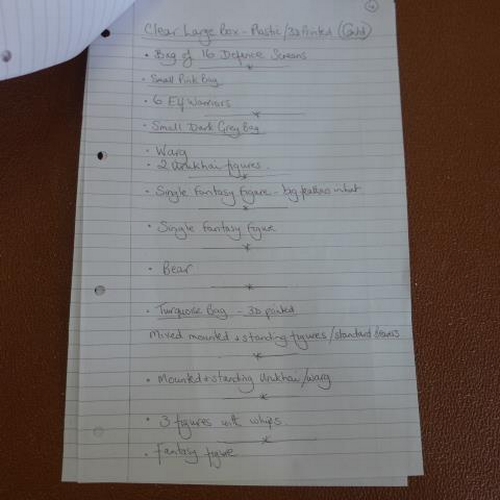 Clear Large Box - Plastic/3D Printed (Contd)
• Bag of 16 Defence Screens
• Small Pink Bag
• 6 Elf Warriors
• Small Dark Grey Bag
• Warg
• 2 Urukhai figures.
• Single Fantasy Figure - big feathers in hat
• Single Fantasy Figure
• Bear
• Turquoise Bag - 3D printed
Mixed mounted + standing figures/standard bearers
• Mounted + standing Urukhai/warg
• 3 figures with whips
• Fantasy figure